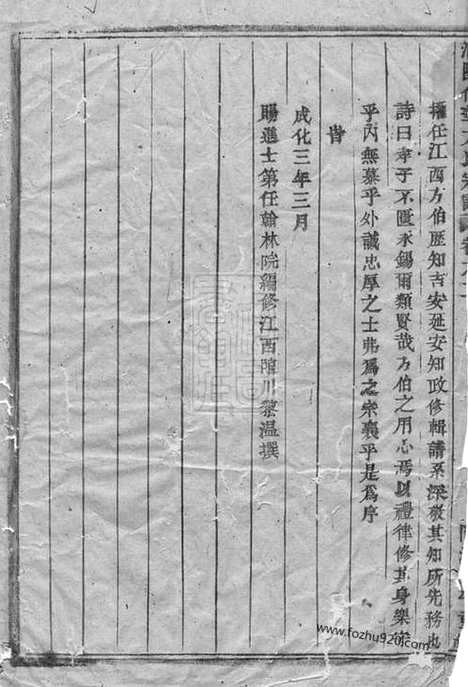 擢任江西方伯歷知吉安延安知政修輯譜系深發其知所先務也
詩曰孝子不匱永錫爾類賢哉方伯之用心焉以禮律修其身樂
乎內無慕乎外誠忠厚之士弗爲之崇襄乎是爲序
旹
成化三年三月
賜進士第任翰林院編修江西臨川黎溫撰
www.fozhu920.com